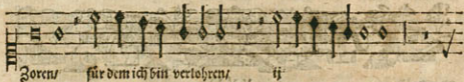 Zoren/ für dem ich bin verlohren/ ij